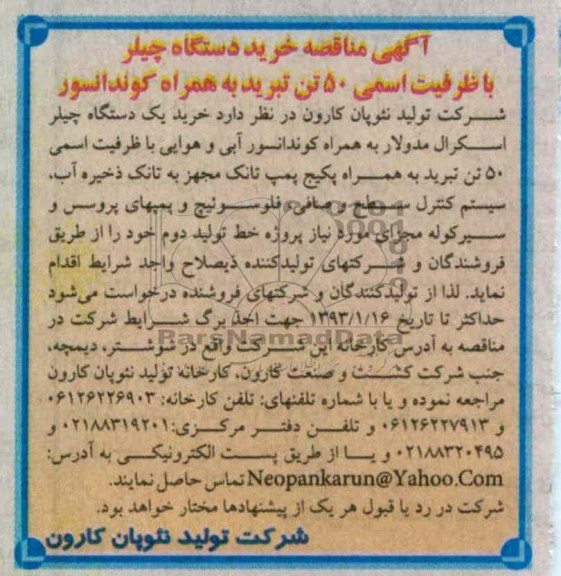 آگهی مناقصه خرید دستگاه چیلر
با ظرفیت اسمی ۵۰ تن تبرید به همراه کوندانسور
شرکت تولید نئوپان کارون در نظر دارد خرید یک دستگاه چیلر
اسکرال مدولار به همراه کوندانسور آبی و هوایی با ظرفیت اسمی
۵۰ تن تبرید به همراه پکیج پمپ تانک مجهز به تانک ذخیره آب،
سیستم کنترل سطح و صافی، فلوسوئیچ و پمپهای پروسس و
سیرکوله مجزای مورد نیاز پروژه خط تولید دوم خود را از طریق
فروشندگان و شرکتهای تولیدکننده ذیصلاح واجد شرایط اقدام
نماید. لذا از تولیدکنندگان و شرکتهای فروشنده درخواست می‌شود
حداکثر تا تاریخ ۱۳۹۳/۱/۱۶ جهت اخذ برگ شرایط شرکت در
مناقصه به آدرس کارخانه این شرکت واقع در شوشتر، دیمچه،
جنب شرکت کشت و صنعت کارون، کارخانه تولید نئوپان کارون
مراجعه نموده و یا با شماره تلفنهای: تلفن کارخانه: ۰۶۱۲۶۲۲۶۹۰۳
و ۰۶۱۲۶۲۲۷۹۱۳ و تلفن دفتر مرکزی: ۰۲۱۸۸۳۱۹۲۰۱ و
۰۲۱۸۸۳۲۰۴۹۵ و یا از طریق پست الکترونیکی به آدرس:
Neopankarun@Yahoo.Com تماس حاصل نمایند.
شرکت در رد یا قبول هر یک از پیشنهادها مختار خواهد بود.
شرکت تولید نئوپان کارون
ParsNamadData